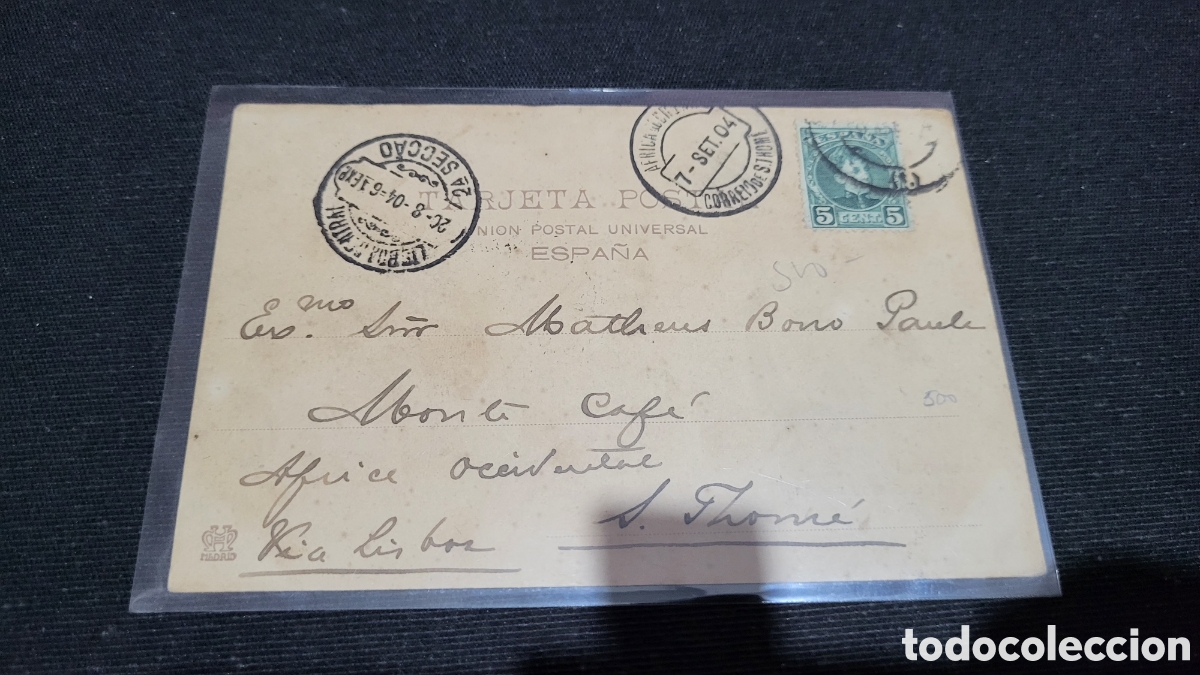 LISBOA CENTRAL
20-8-04=6
2A SECCÃO
AFRICA
7-SET.04
CORREIO DE S.THOMÉ
ESPAÑA
5 CENT. 5
TARJETA POST
UNION POSTAL UNIVERSAL
ESPAÑA
500
Exmo. Snr Matheus Bono Paula
Monte Café
500
Africa Occidental
S. Thomé
Via Lisboa
MADRID
todocoleccion